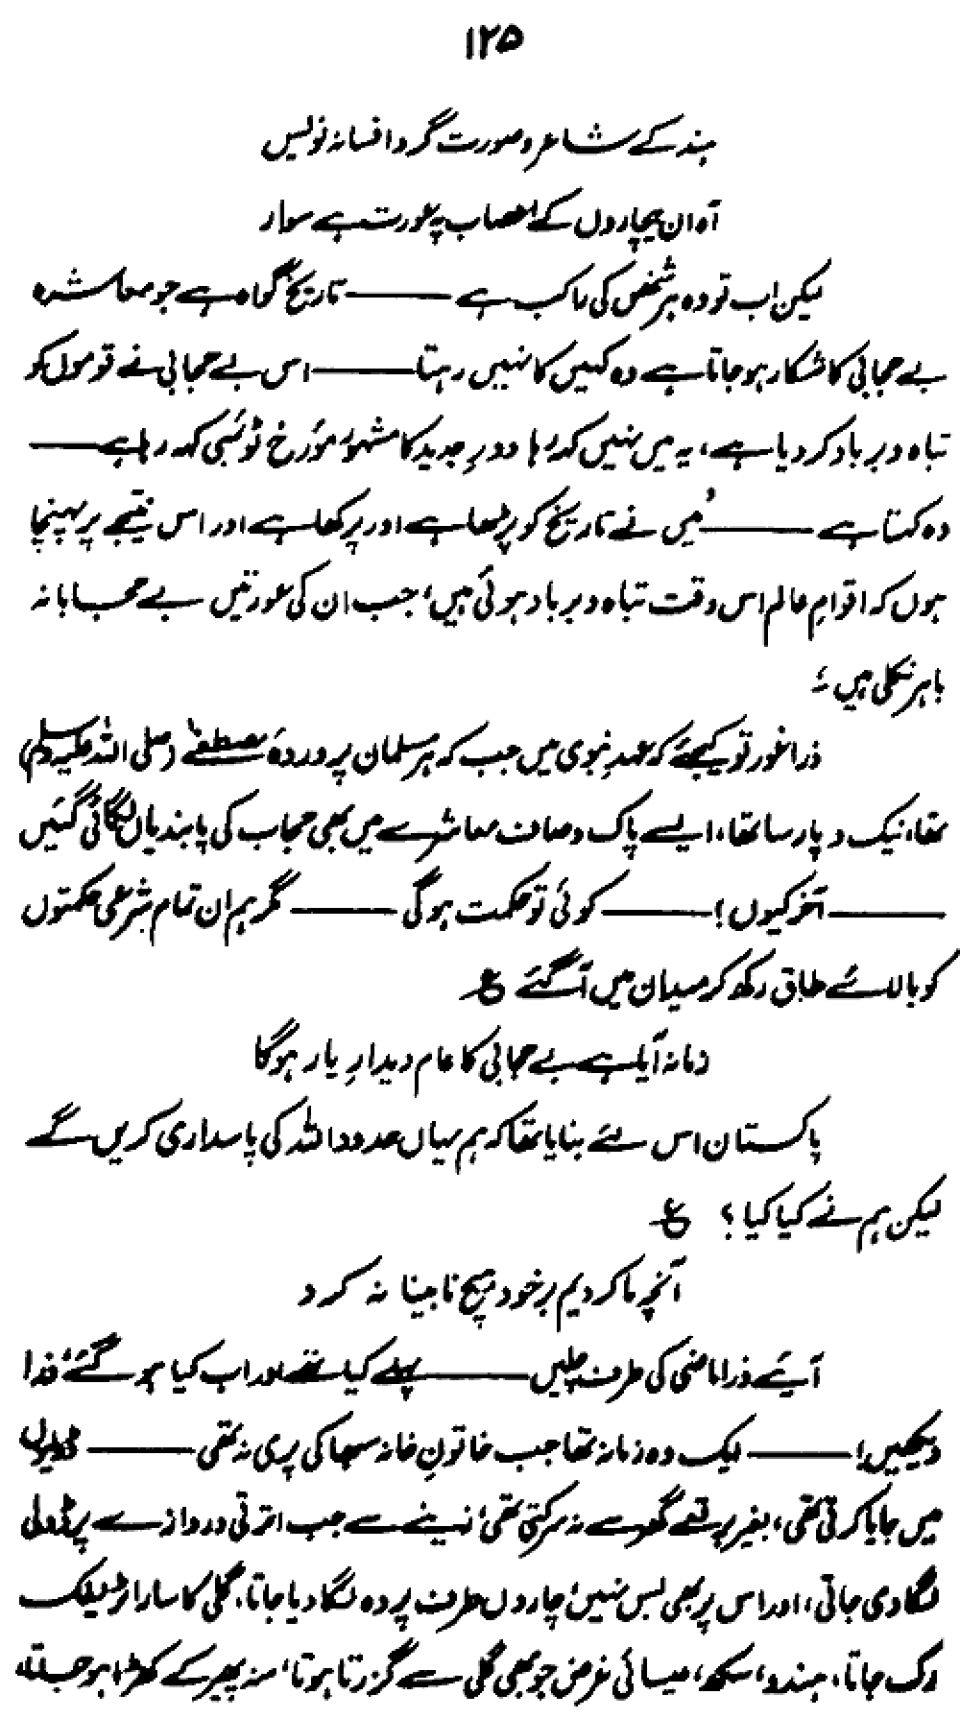 ۱۲۵
ہند کے شاعر و صورت گر و افسانہ نویس
آہ ان بیچاروں کے اعصاب پہ عورت ہے سوار
لیکن اب تو وہ ہر شخص کی راکب ہے ——— تاریخ گواہ ہے جو معاشرہ
بے حجابی کا شکار ہو جاتا ہے وہ کہیں کا نہیں رہتا ——— اس بے حجابی نے قوموں کو
تباہ و برباد کر دیا ہے، یہ میں نہیں کہہ رہا دورِ جدید کا مشہور مؤرخ ٹوئمبی کہہ رہا ہے ———
وہ کہتا ہے ——— ’میں نے تاریخ کو پڑھا ہے اور پرکھا ہے اور اس نتیجے پر پہنچا
ہوں کہ اقوامِ عالم اس وقت تباہ و برباد ہوئی ہیں، جب ان کی عورتیں بے محابانہ
باہر نکلی ہیں‘
ذرا غور تو کیجئے کہ عہدِ نبوی میں جب کہ ہر مسلمان پروردۂ مصطفےٰ (صلی اللہ علیہ وسلم)
تھا، نیک و پارسا تھا، ایسے پاک و صاف معاشرے میں بھی حجاب کی پابندیاں لگائی گئیں
——— آخر کیوں! ——— کوئی تو حکمت ہوگی ——— مگر ہم ان تمام شرعی حکمتوں
کو بالائے طاق رکھ کر میدان میں آگئے ع
زمانہ آیا ہے بے حجابی کا عام دیدارِ یار ہوگا
پاکستان اس لئے بنایا تھا کہ ہم یہاں حدود اللہ کی پاسداری کریں گے
لیکن ہم نے کیا کیا؟ ع
آنچہ ما کردیم بر خود ہیچ نابینا نہ کرد
آیئے ذرا ماضی کی طرف چلیں ——— پہلے کیا تھے اور اب کیا ہو گئے، ذرا
دیکھیں! ——— ایک وہ زمانہ تھا جب خاتونِ خانہ سبھا کی پری نہ تھی ——— ڈولیوں
میں جایا کرتی تھی، بغیر برقعے گھر سے نہ سرکتی تھی، زینے سے جب اترتی دروازے پر ڈولی
لگا دی جاتی، اور اس پر بھی بس نہیں، چاروں طرف پردہ لگا دیا جاتا، گلی کا سارا ٹریفک
رک جاتا، ہندو، سکھ، عیسائی غرض جو بھی گلی سے گزرتا ہوتا، منہ پھیر کے کھڑا ہو جاتا،